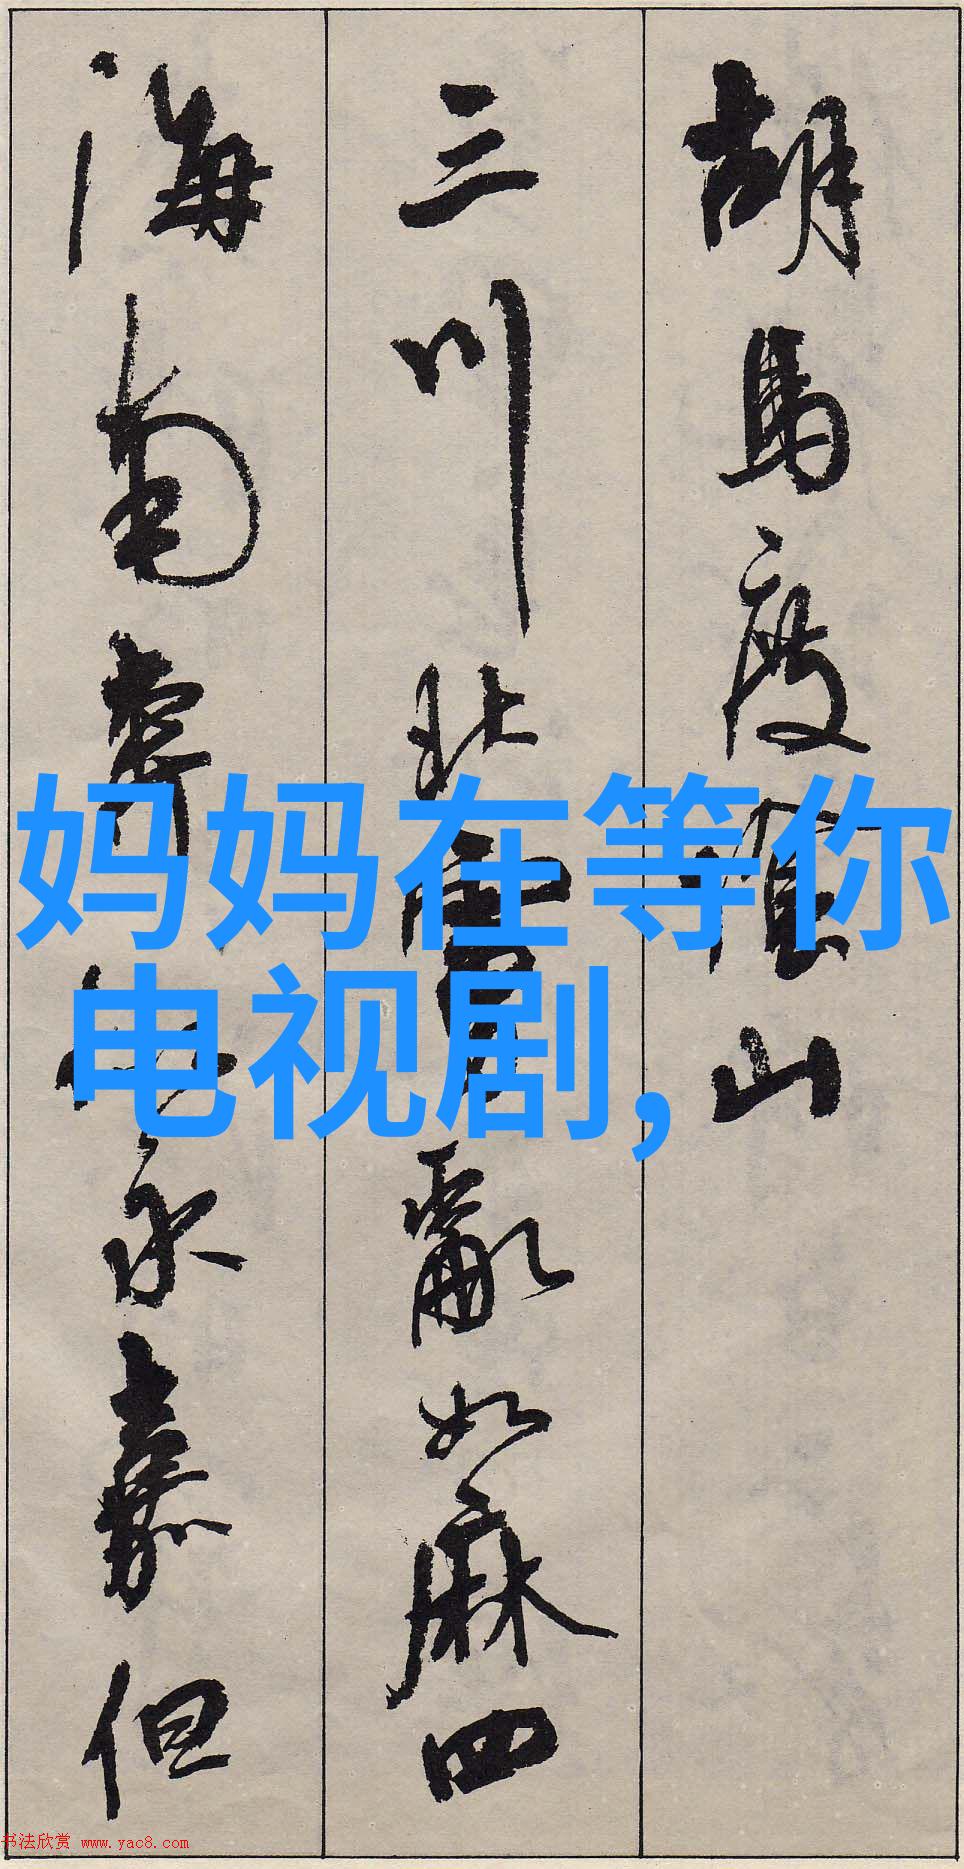 胡馬度陰山
三川北虜亂如麻四
海南奔似永嘉但
妈妈在等你
电视剧,
书法欣赏 www.yac8.com